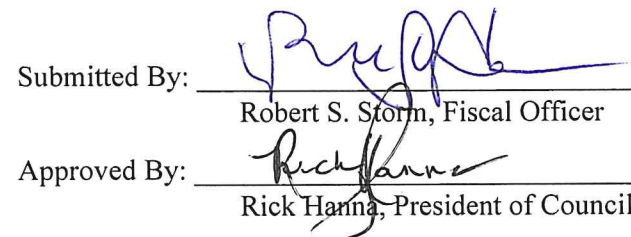 Submitted By:
Robert S. Storm, Fiscal Officer
Approved By: Rick Hanna
Rick Hanna, President of Council